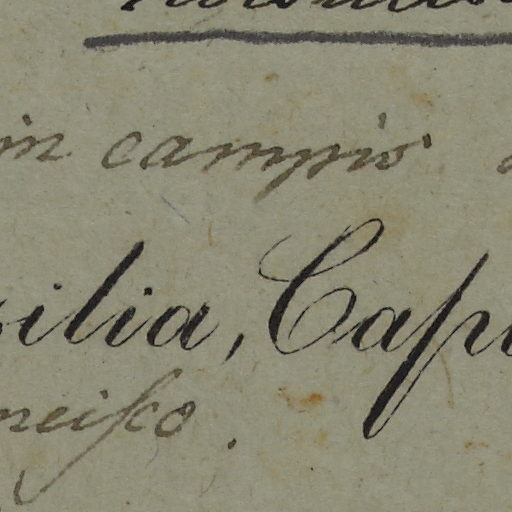 in campis
silia, Cap
neisco.